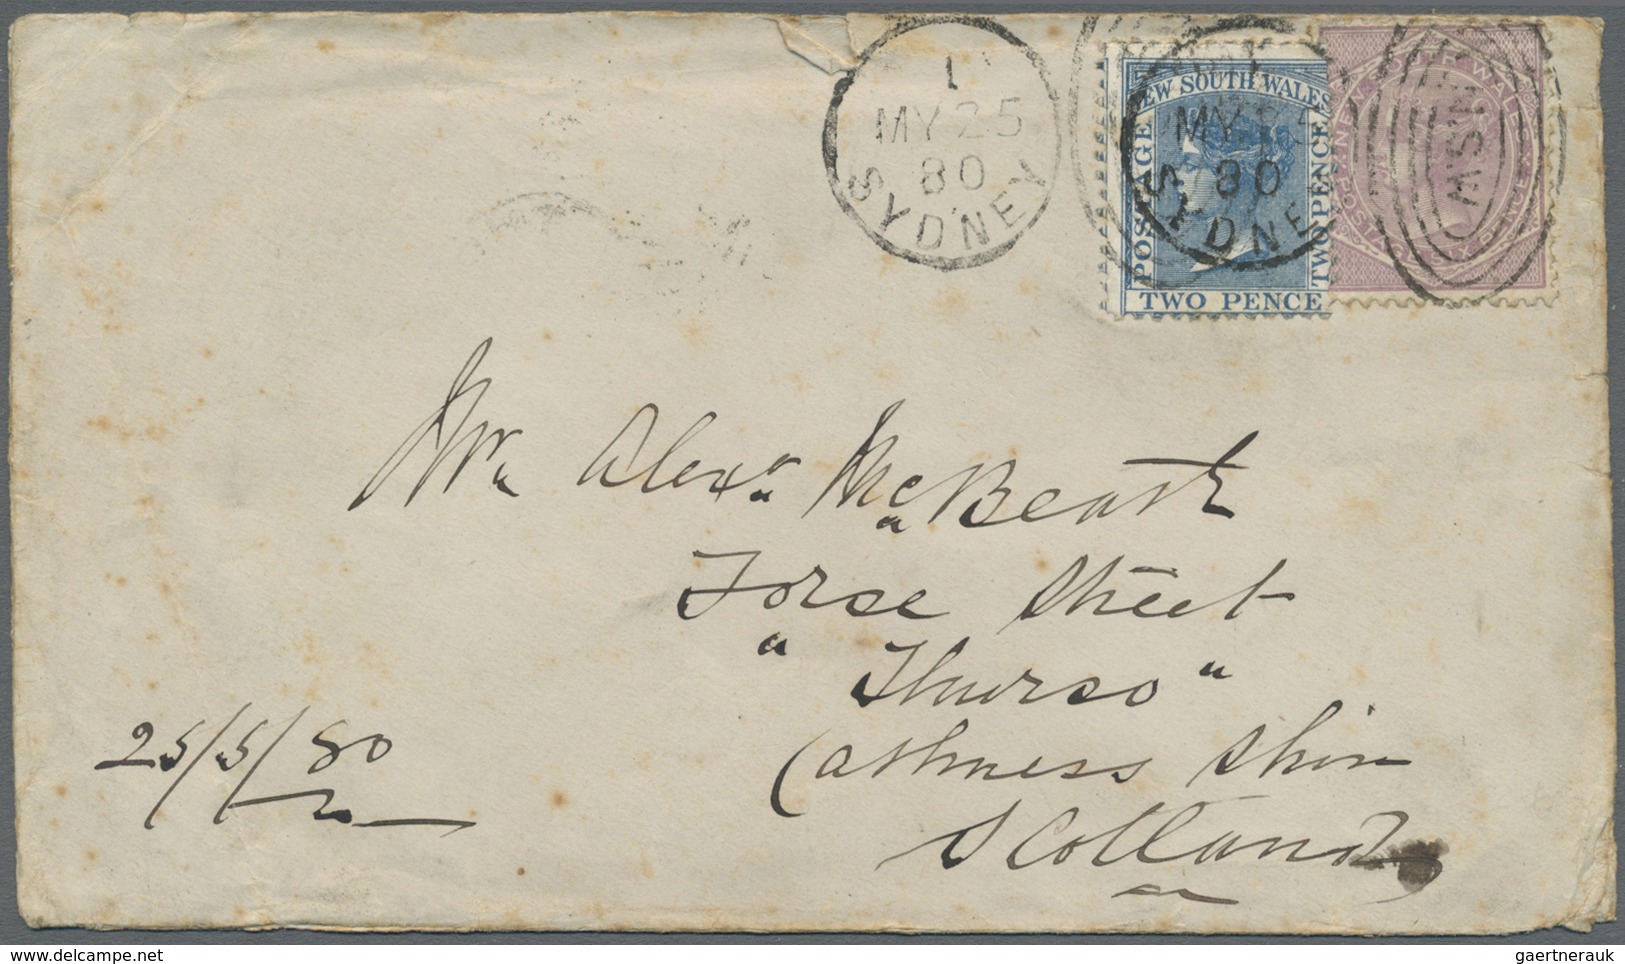 1
MY 25
80
SYDNEY
NEW SOUTH WALES
POSTAGE
TWOPENCE
TWO PENCE
MY 25
80
SYDNEY
NSW
Mr. Alexr. McBeath
Forse Street
"Thurso"
Caithness Shire
Scotland
25/5/80
gaertnerauk